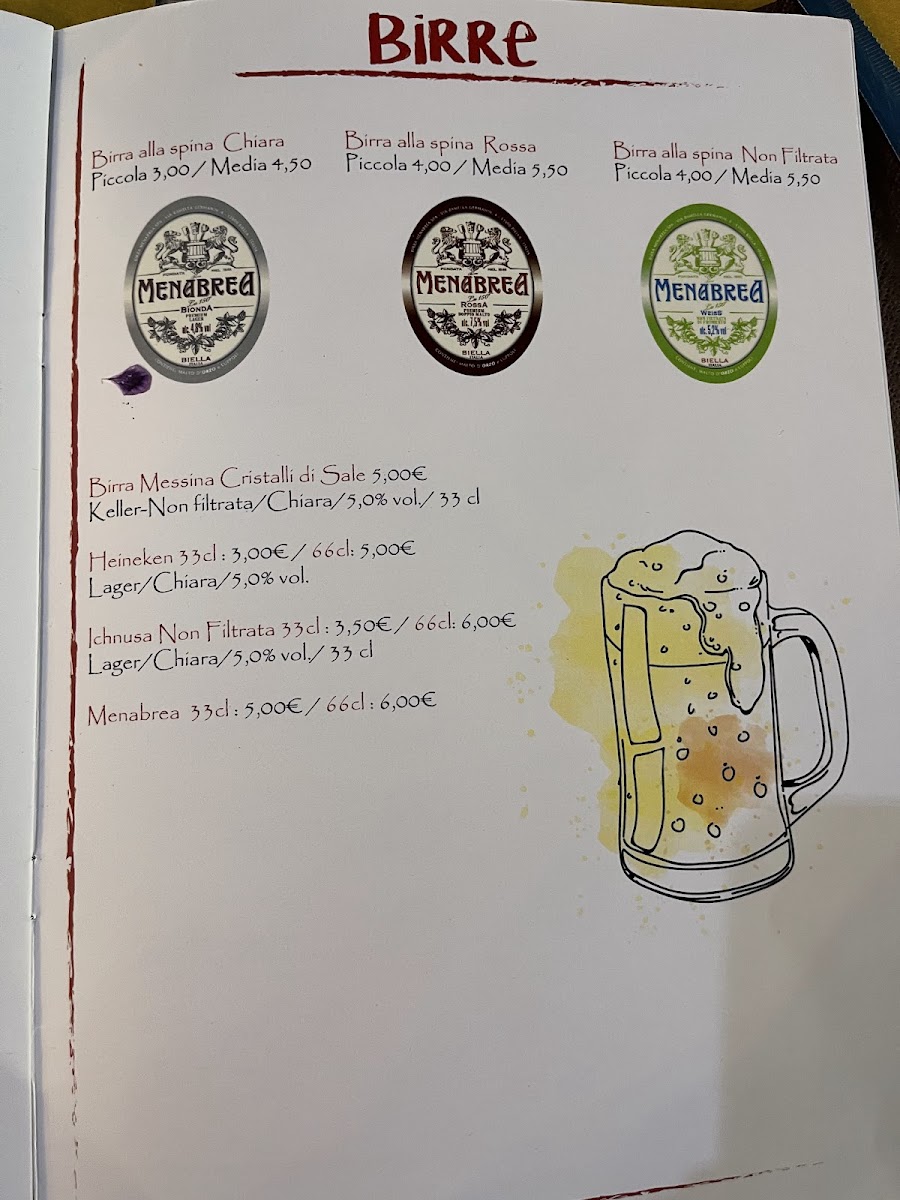 BiRRe
Birra alla spina Chiara
Piccola 3,00 / Media 4,50
Birra alla spina Rossa
Piccola 4,00 / Media 5,50
Birra alla spina Non Filtrata
Piccola 4,00 / Media 5,50
MENABREA
La 150°
BIONDA
PREMIUM
LAGER
alc. 4,8% vol
BIELLA
ITALIA
MENABREA
La 150°
ROSSA
PREMIUM
DOPPIO MALTO
alc. 7,5% vol
BIELLA
ITALIA
MENABREA
La 150°
WEISS
alc. 5,2% vol
BIELLA
ITALIA
Birra Messina Cristalli di Sale 5,00€
Keller-Non filtrata/Chiara/5,0% vol./ 33 cl
Heineken 33cl : 3,00€ / 66cl: 5,00€
Lager/Chiara/5,0% vol.
Ichnusa Non Filtrata 33cl : 3,50€ / 66cl: 6,00€
Lager/Chiara/5,0% vol./ 33 cl
Menabrea 33cl : 5,00€ / 66cl : 6,00€